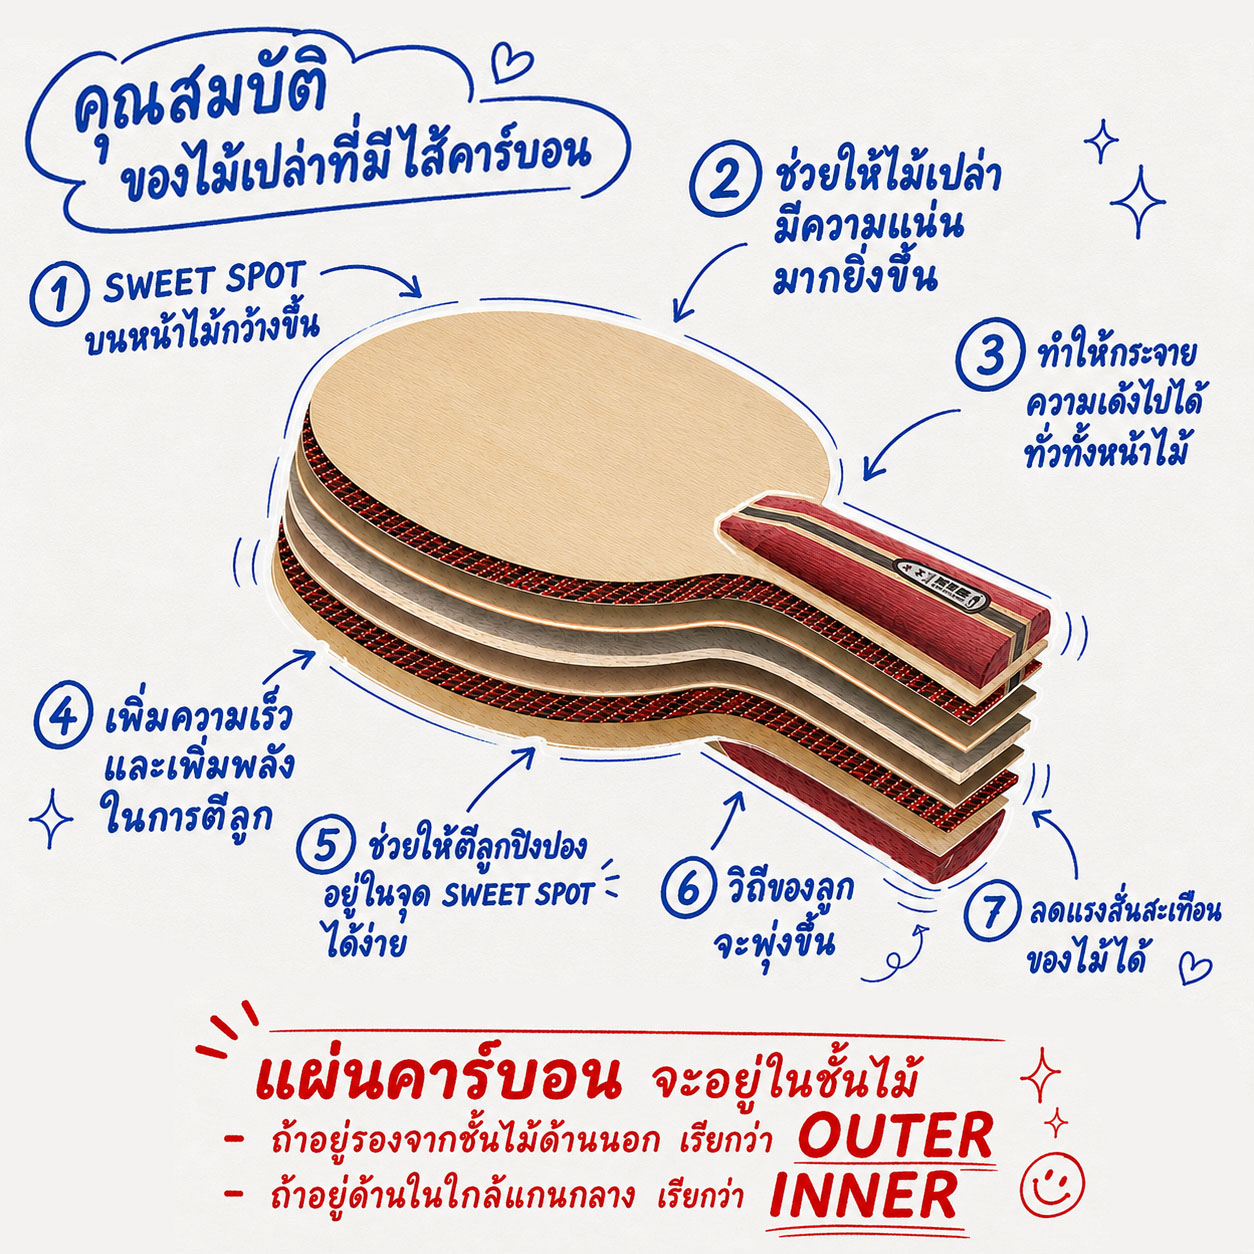 คุณสมบัติ
ของไม้เปล่าที่มีไส้คาร์บอน
1 SWEET SPOT
บนหน้าไม้กว้างขึ้น
2 ช่วยให้ไม้เปล่า
มีความแน่น
มากยิ่งขึ้น
3 ทำให้กระจาย
ความเด้งไปได้
ทั่วทั้งหน้าไม้
4 เพิ่มความเร็ว
และเพิ่มพลัง
ในการตีลูก
5 ช่วยให้ตีลูกปิงปอง
อยู่ในจุด SWEET SPOT
ได้ง่าย
6 วิถีของลูก
จะพุ่งขึ้น
7 ลดแรงสั่นสะเทือน
ของไม้ได้
แผ่นคาร์บอน จะอยู่ในชั้นไม้
- ถ้าอยู่รองจากชั้นไม้ด้านนอก เรียกว่า OUTER
- ถ้าอยู่ด้านในใกล้แกนกลาง เรียกว่า INNER